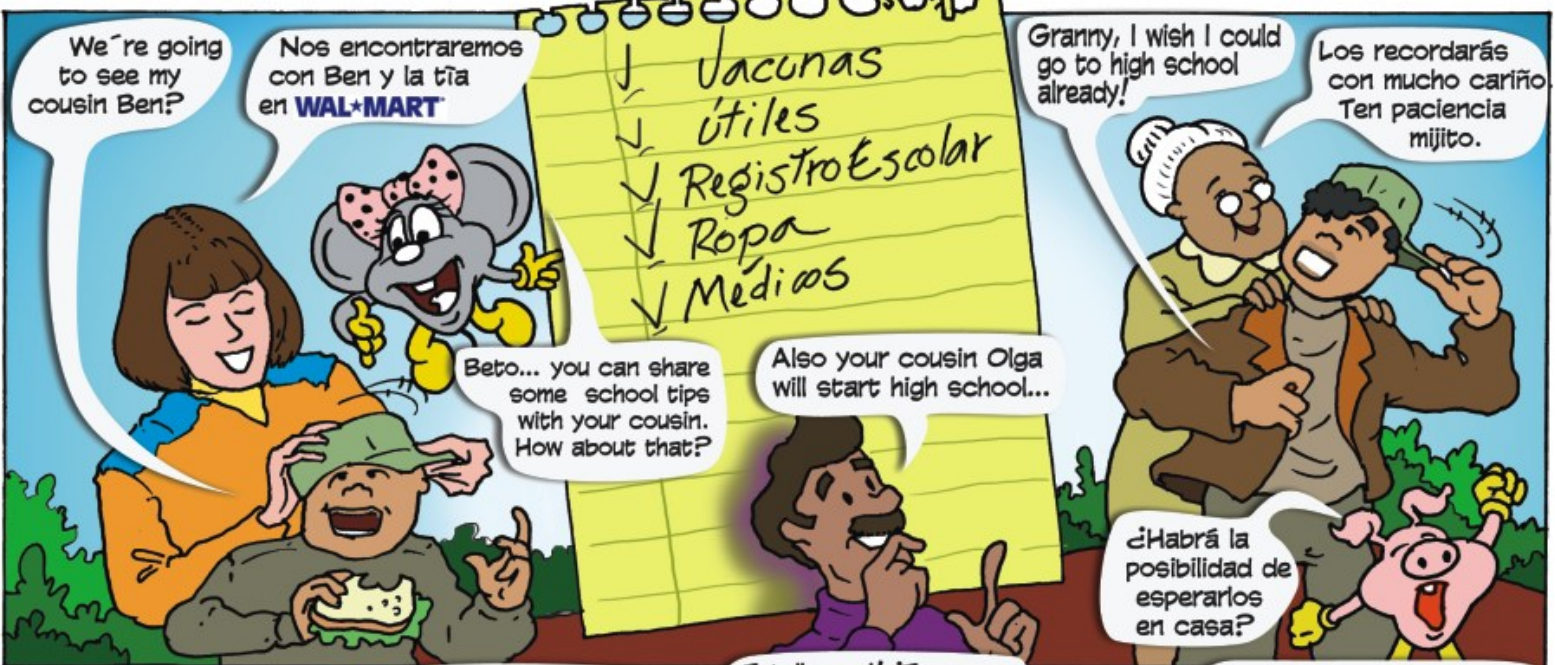 We´re going
to see my
cousin Ben?
Nos encontraremos
con Ben y la tìa
en WAL★MART
Vacunas
útiles
Registro Escolar
Ropa
Médicos
Beto... you can share
some school tips
with your cousin.
How about that?
Also your cousin Olga
will start high school...
Granny, I wish I could
go to high school
already!
Los recordarás
con mucho cariño.
Ten paciencia
mijito.
¿Habrá la
posibilidad de
esperarlos
en casa?